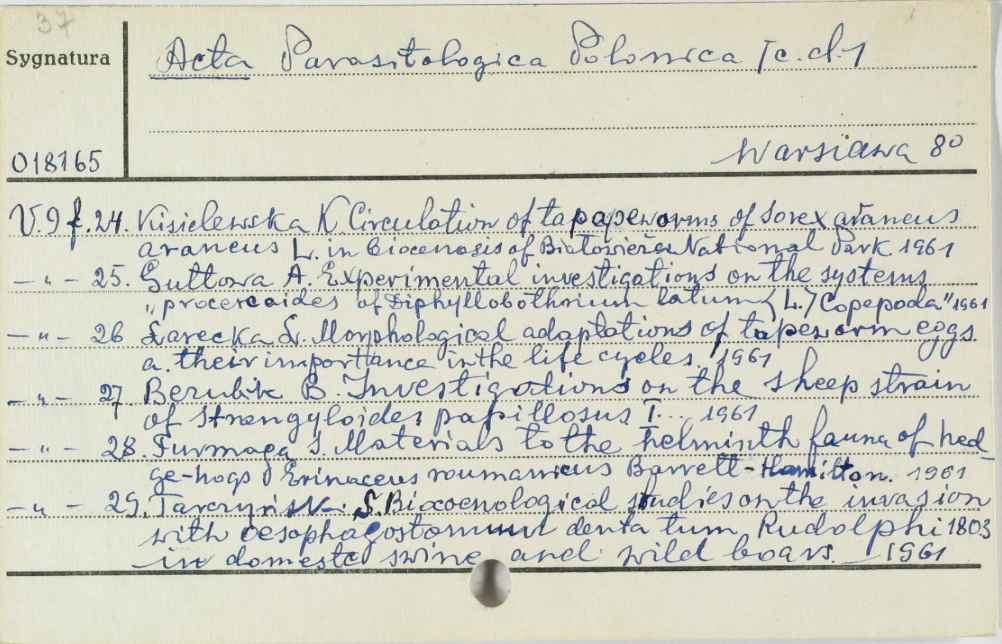 37
Sygnatura
Acta Parasitologica Polonica /c.d./
018165
Warsiawa 8°
V.9 f.24. Kisielewska K. Circulation of tapapeworms of Sorex araneus
araneus L. in biocenosis of Białowieża National Park 1961
— „ — 25. Guttowa A. Experimental investigations on the systems
„procercoides of Diphyllobothrium latum /L./ Copepoda" 1961
— „ — 26 Żarecka L. Morphological adaptations of tapeworm eggs.
a. their importtance in the life cycles. 1961
— „ — 27 Bezubik B. Investigations on the sheep strain
of Strongyloides papillosus I... 1961
— „ — 28. Furmaga S. Materials to the helminth fauna of hed-
ge-hogs / Erinaceus roumanicus Barrett-Hamilton. 1961
— „ — 29. Tarczyńsk. S. Bioxoenological studies on the invasion
with oesophagostomum denta tum Rudolphi 1803
in domestc swine and wild boars. 1961